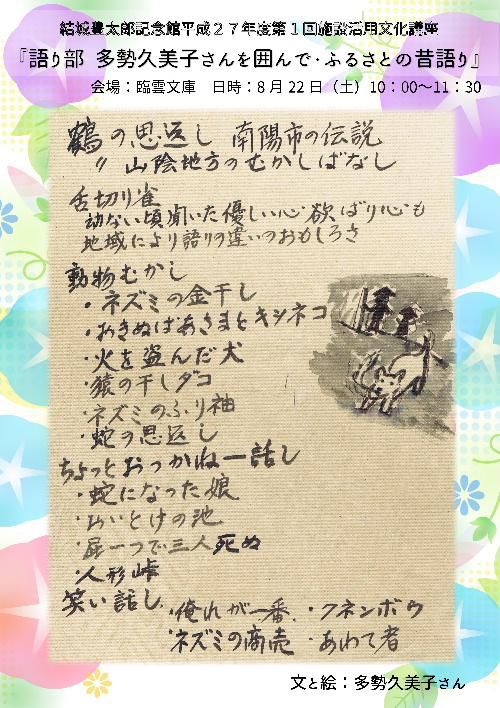 結城豊太郎記念館平成27年度第1回施設活用文化講座
『語り部 多勢久美子さんを囲んで・ふるさとの昔語り』
会場：臨雲文庫 日時：8月22日（土）10：00～11：30
鶴の恩返し 南陽市の伝説
〃 山陰地方のむかしばなし
舌切り雀
幼ない頃聞いた優しい心欲ばり心も
地域により語りの違いのおもしろさ
動物むかし
・ネズミの金干し
・おきぬばあさまとキジネコ
・火を盗んだ犬
・猿の干しダコ
・ネズミのふり袖
・蛇の恩返し
ちょっとおっかねー話し
・蛇になった娘
・おいとけの池
・屁一つで三人死ぬ
・人形峠
笑い話し
・俺れが一番 ・クネンボウ
・ネズミの商売 ・あわて者
文と絵：多勢久美子さん